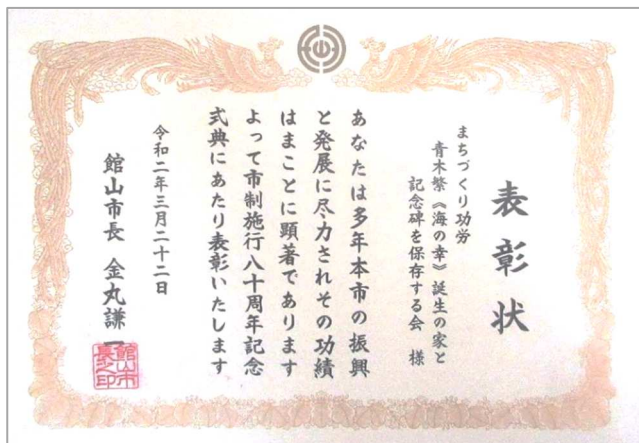 表彰状
まちづくり功労
青木繁《海の幸》誕生の家と
記念碑を保存する会 様
あなたは多年本市の振興
と発展に尽力されその功績
はまことに顕著であります
よって市制施行八十周年記念
式典にあたり表彰いたします
令和二年三月二十二日
館山市長 金丸謙一
館山市
長之印